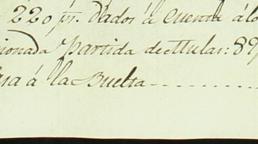 220 ps. Dados á Cuenta á lo
cionada Partida de Mulas: 89
sa á la Buelta